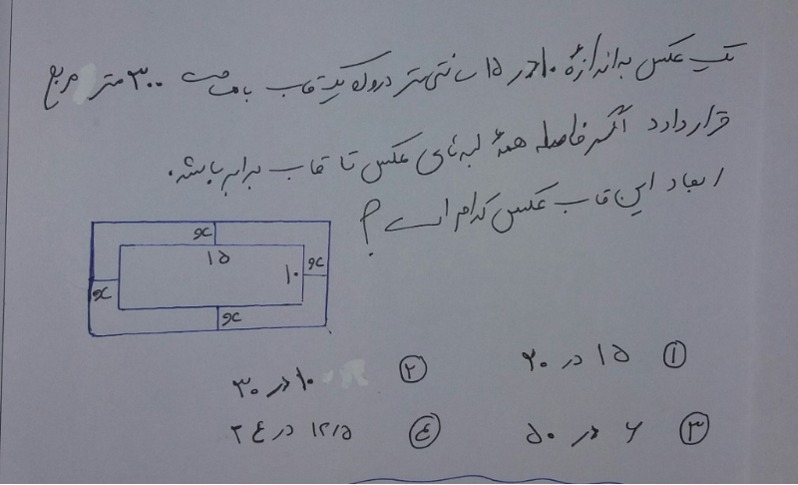 یک عکس به اندازهٔ ۱۰ در ۱۵ سانتی متر درون یک قاب با مساحت ۳۰۰ متر مربع
قرار دارد اگر فاصله همهٔ لبه های عکس تا قاب برابر باشد.
ابعاد این قاب عکس کدام است ؟
x
۱۵
x ۱۰ x
x
① ۱۵ در ۲۰ ② ۱۰ در ۳۰
③ ۶ در ۵۰ ④ ۱۲/۵ در ۲۴